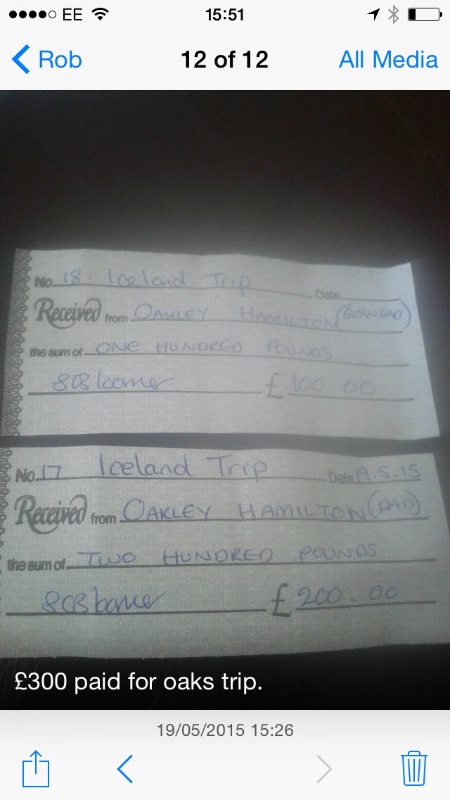 EE 15:51
Rob 12 of 12 All Media
No. 18. Iceland Trip Date
Received from OAKLEY HAMILTON (GRANDAD)
the sum of ONE HUNDRED POUNDS
£ 100.00
No. 17 Iceland Trip Date 19.5.15
Received from OAKLEY HAMILTON (DAD)
the sum of TWO HUNDRED POUNDS
£ 200.00
£300 paid for oaks trip.
19/05/2015 15:26